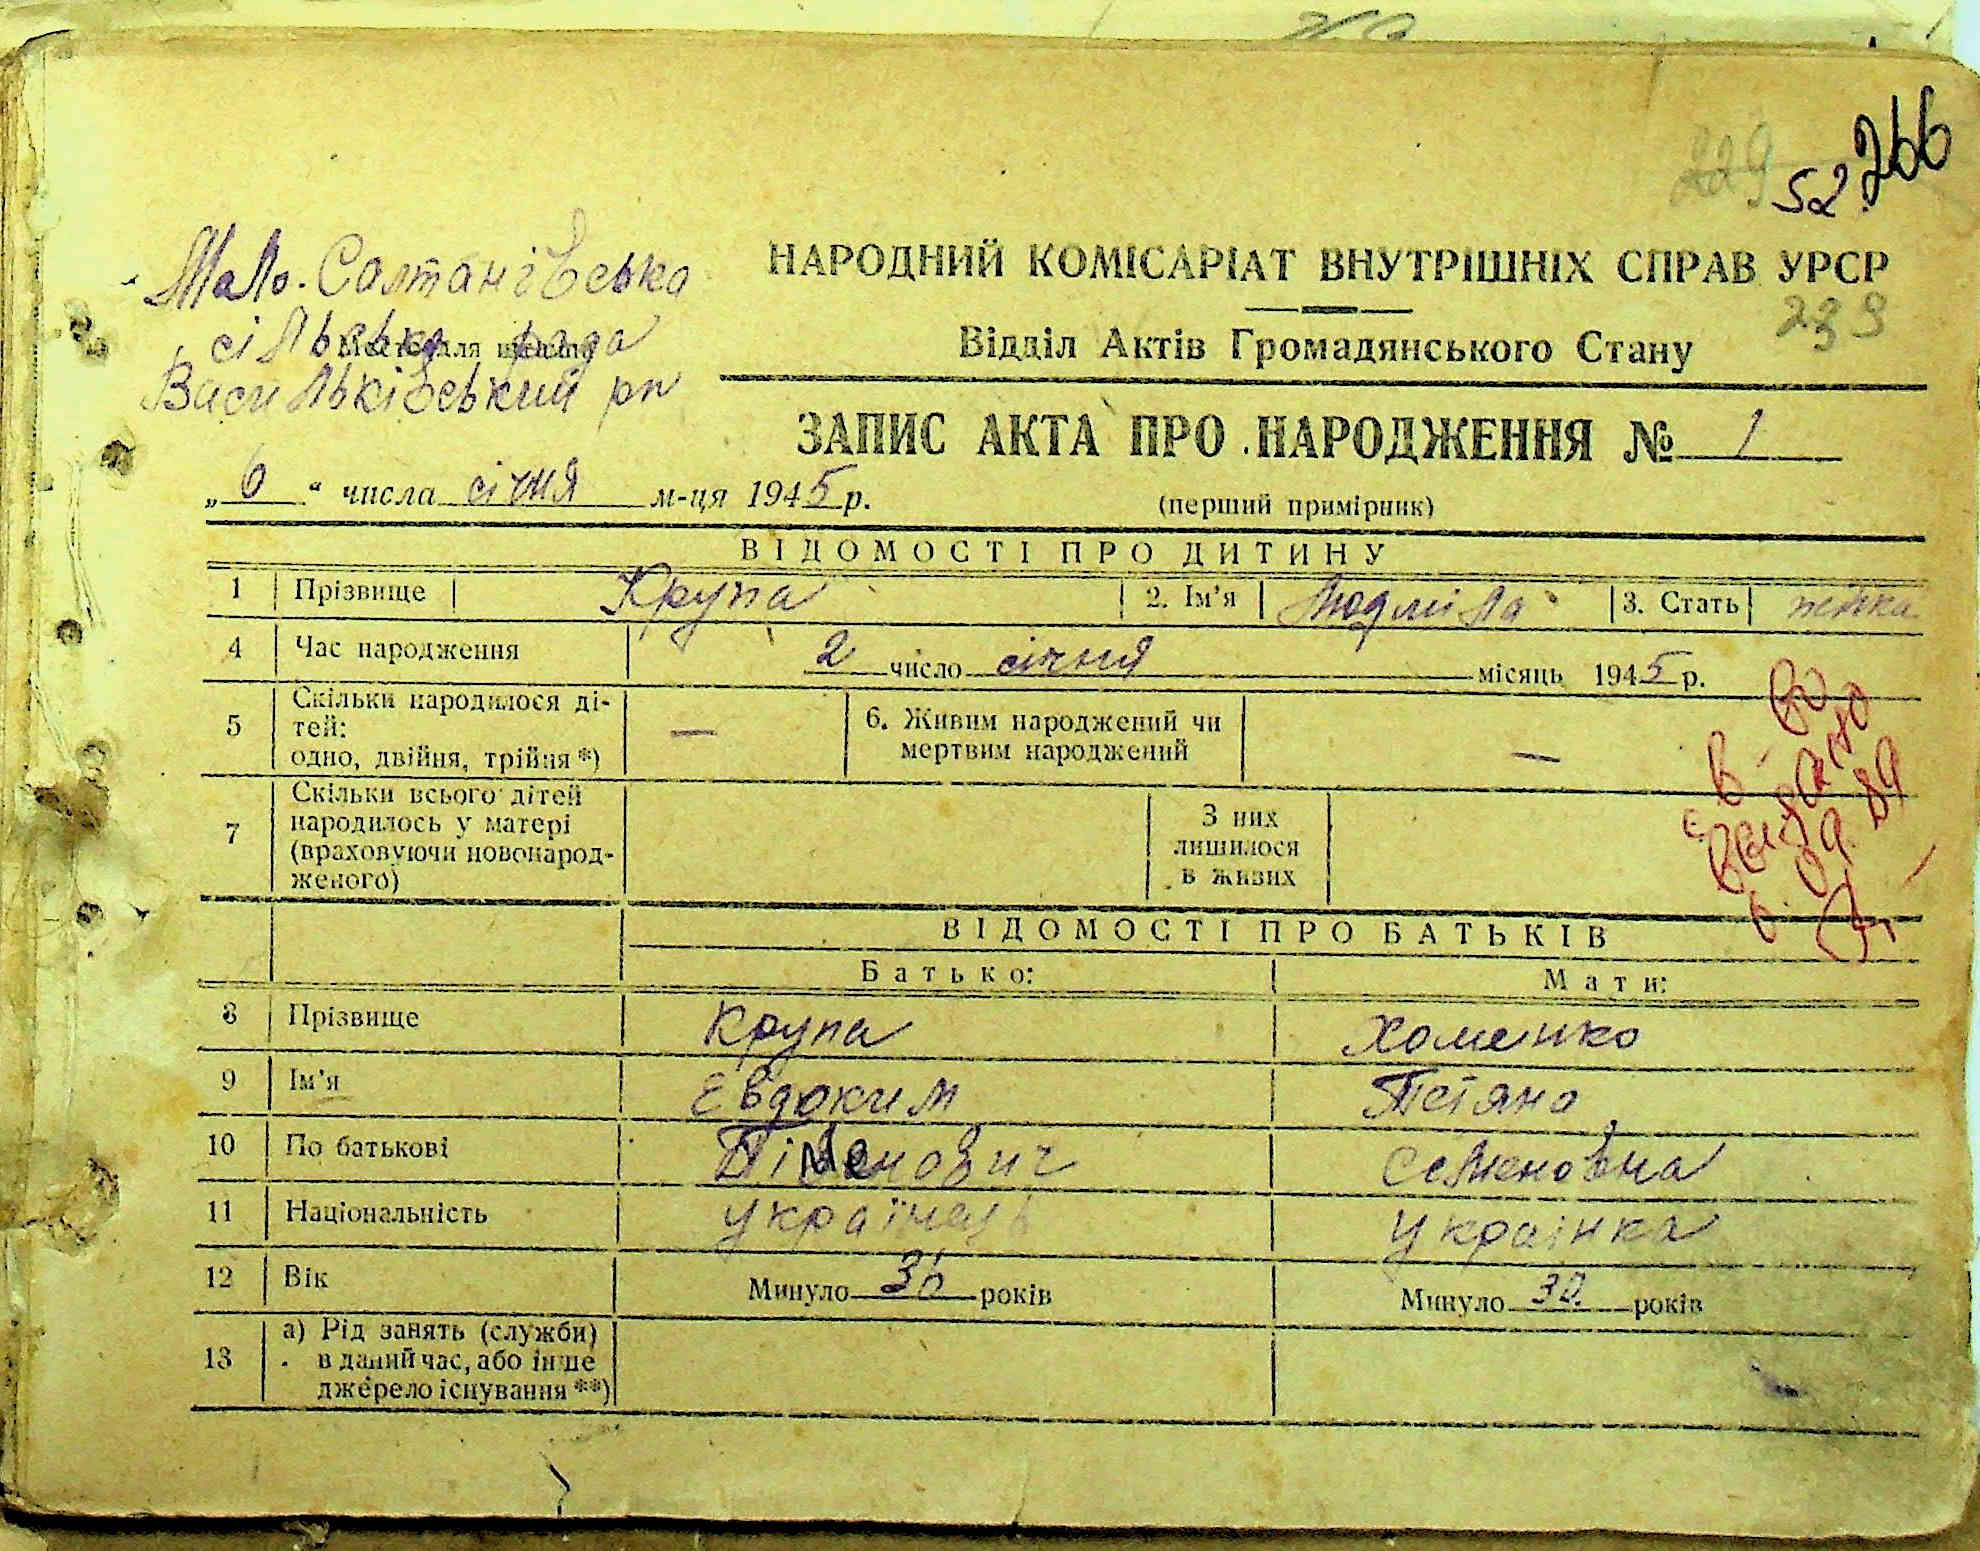 229
52. 266
Мало-Солтанівська
сільська рада
Васильківський рп
НАРОДНИЙ КОМІСАРІАТ ВНУТРІШНІХ СПРАВ УРСР
239
Відділ Актів Громадянського Стану
ЗАПИС АКТА ПРО НАРОДЖЕННЯ № 1
„ 6 “ числа січня м-ця 1945 р.
(перший примірник)
ВІДОМОСТІ ПРО ДИТИНУ
1 Прізвище Крупа 2. Ім’я Людміла 3. Стать жінка
4 Час народження 2 число січня місяць 1945 р.
5 Скільки народилося ді-
тей:
одно, двійня, трійня *) —
6. Живим народжений чи
мертвим народжений —
7 Скільки всього дітей
народилось у матері
(враховуючи новонарод-
женого)
З них
лишилося
в живих
ВІДОМОСТІ ПРО БАТЬКІВ
Батько: Мати:
8 Прізвище Крупа Хоменко
9 Ім’я Евдоким Тетяна
10 По батькові Піменович Семеновна
11 Національність українець українка
12 Вік Минуло 36 років Минуло 30 років
13 а) Рід занять (служби)
в даний час, або інше
джерело існування **)